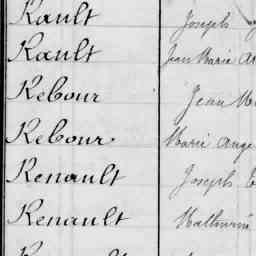 Rault Joseph
Rault Jean Marie
Rebour Jean
Rebour Marie Ange
Renault Joseph
Renault Mathurin